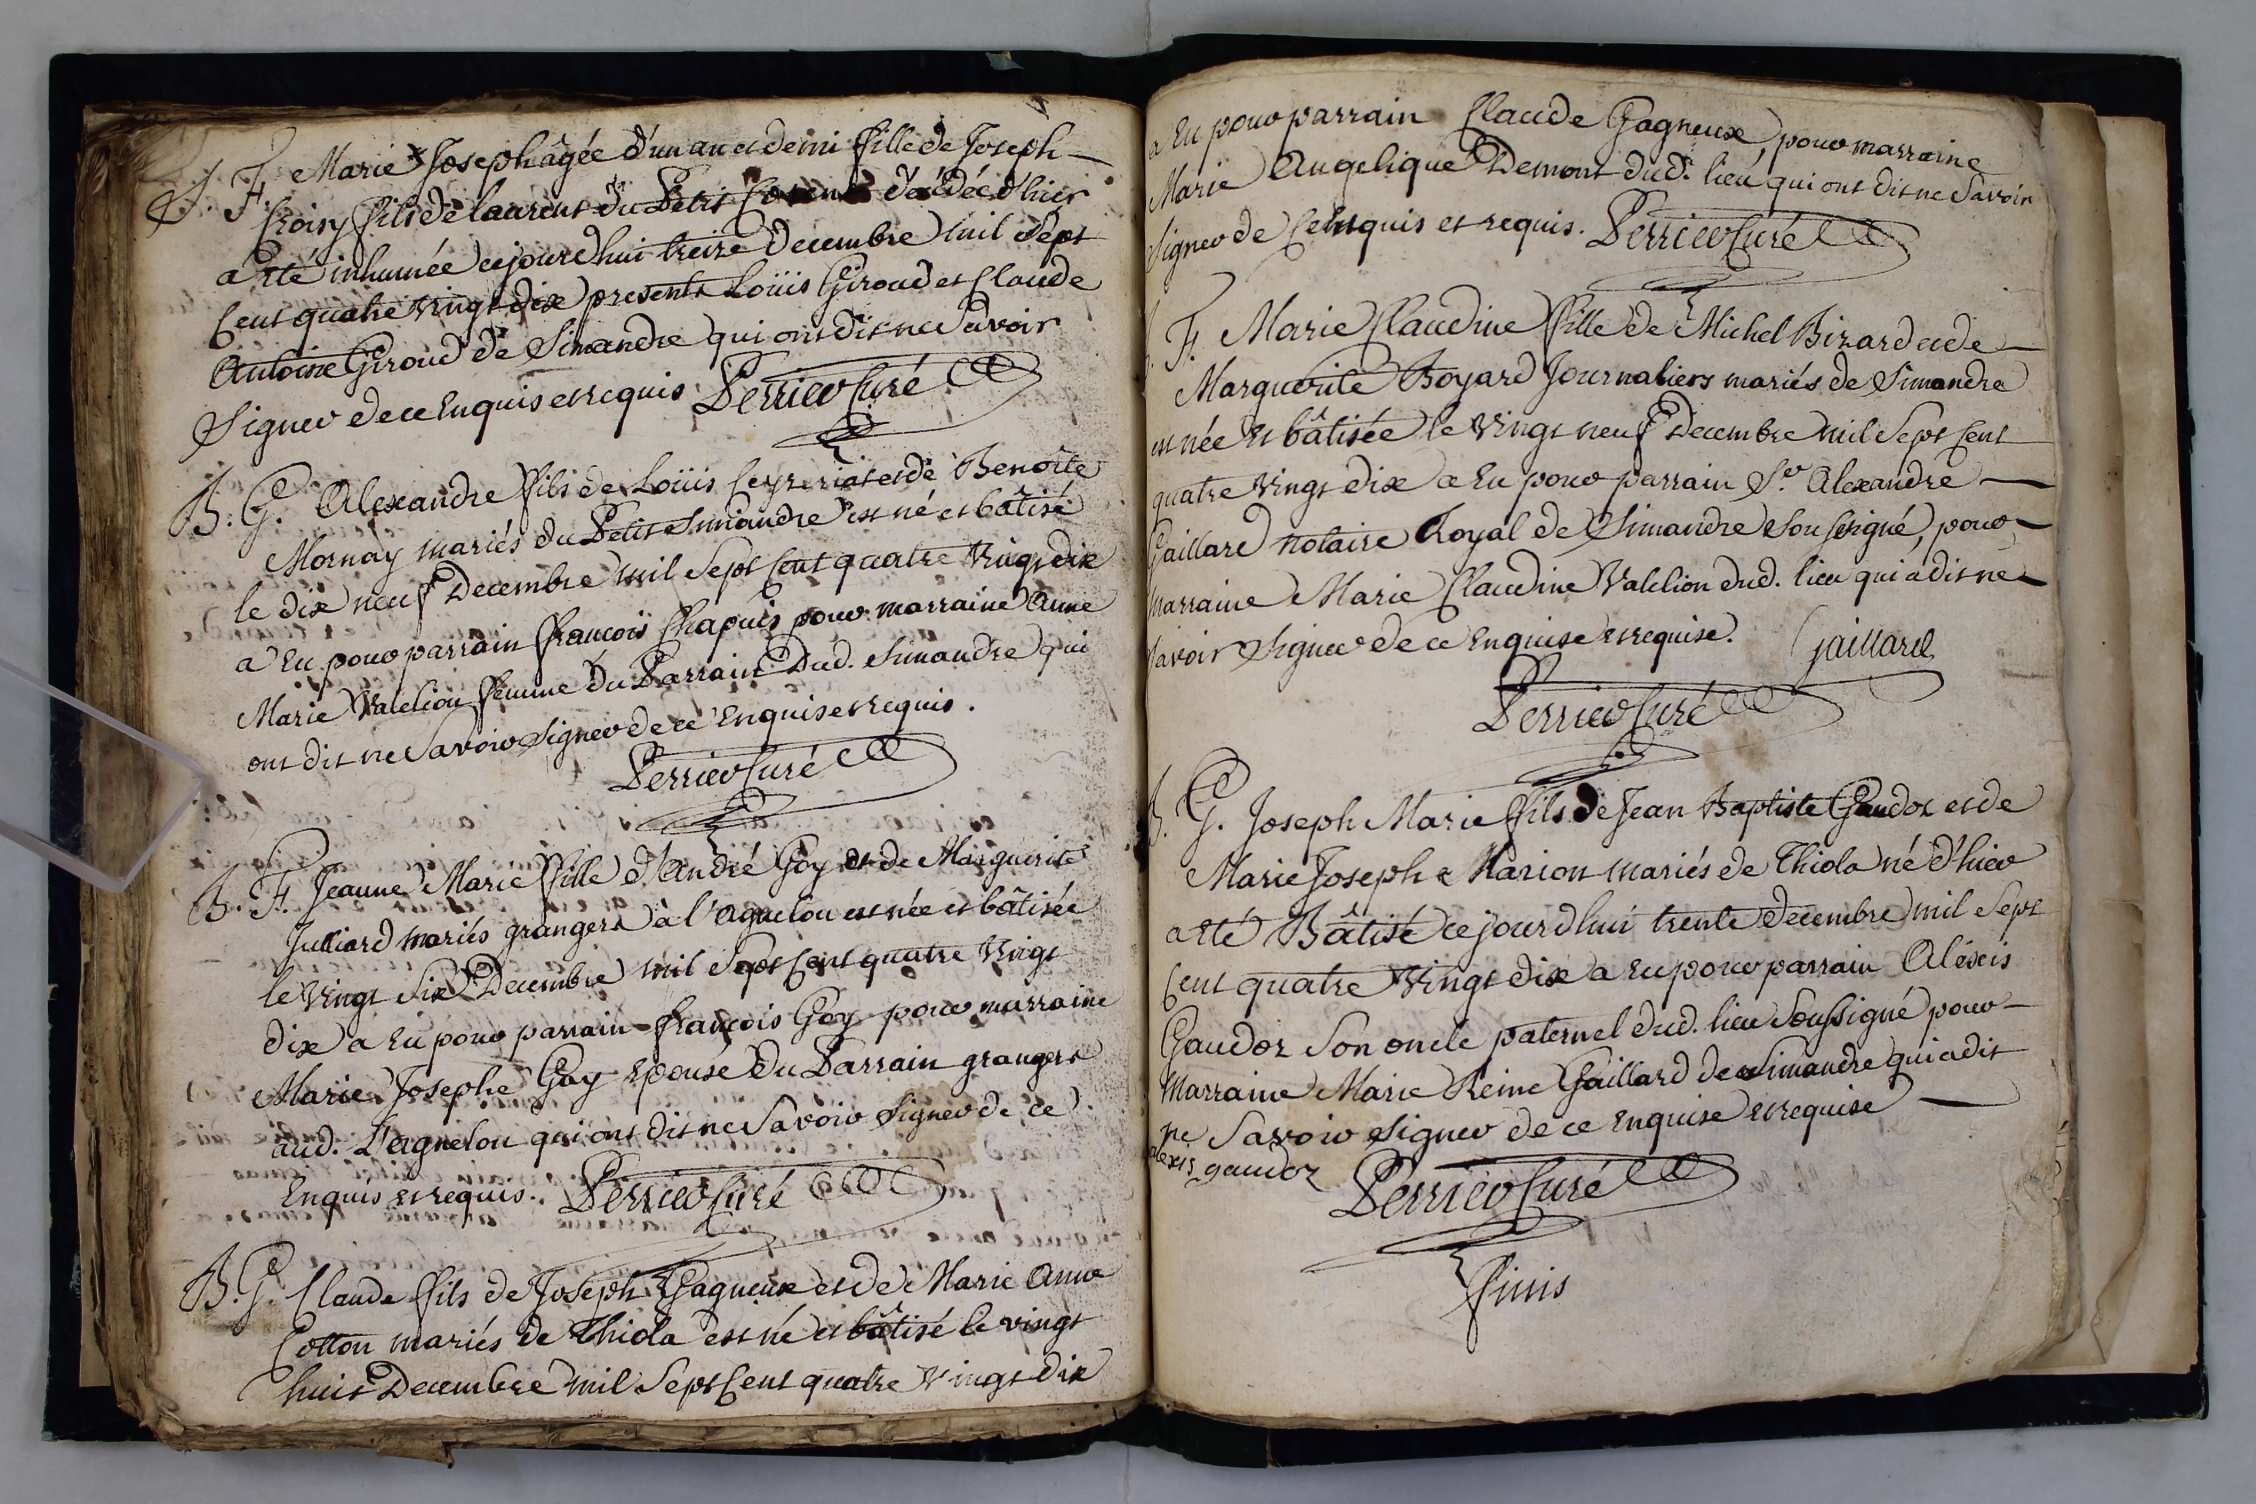 S. F. Marie Joseph âgée d'un an et demi fille de Joseph
Croisy fils de laurent du Petit Corent décédée d'hier
a Eté inhumée cejourdhui treize Decembre mil Sept
Cent quatre vingt dix presents Loüis Giroud et Claude
Antoine Giroud de Simandre qui ont dit ne Savoir
Signer de ce Enquis et requis. Perrier Curé
B. G. Alexandre fils de Loüis Ceyzeriat et de Benoîte
Mornay mariés du Petit Simandre est né et bâtisé
le dix neuf Decembre mil Sept Cent quatre Vingt dix
a Eu pour parrain françois Chapuis pour marraine Anne
Marie Valelion femme du Parrain Dud. Simandre qui
ont dit ne Savoir Signer de ce Enquis et requis.
Perrier Curé
B. F. Jeanne Marie fille d'André Goy et de Marguerite
Julliard mariés grangers à l'Agnelou est née et bâtisée
le Vingt Six Decembre mil Sept Cent quatre Vingt
dix a Eu pour parrain françois Goy pour marraine
Marie Josephe Goy Epouse du Parrain grangers
aud. L'agnelou qui ont dit ne Savoir Signer de ce
Enquis et requis. Perrier Curé
B. G. Claude fils de Joseph Gagneux et de Marie Anne
Cotton mariés de Thiola est né et bâtisé le vingt
huit Decembre mil Sept Cent quatre Vingt dix
a Eu pour parrain Claude Gagneux, pour marraine
Marie Angelique Demont dud. lieu qui ont dit ne Savoir
Signer de Ce Enquis et requis. Perrier Curé
F. Marie Claudine fille de Michel Bizard et de
Marguerite Boyard Journaliers mariés de Simandre
est née et bâtisée le Vingt neuf Decembre mil Sept Cent
quatre Vingt dix a Eu pour parrain Sr. Alexandre
Gaillard notaire Royal de Simandre Soussigné, pour
marraine Marie Claudine Valelion dud. lieu qui a dit ne
Savoir Signer de ce Enquise et requise. Gaillard
Perrier Curé
B. G. Joseph Marie fils de Jean Baptiste Gaudoz et de
Marie Joseph Marion mariés de Thiola né d'hier
a Eté Bâtisé cejourdhui trente decembre mil Sept
Cent quatre Vingt dix a Eu pour parrain Aléxis
Gaudoz Son oncle paternel dud. lieu Soussigné pour
marraine Marie Reine Gaillard de Simandre qui a dit
ne Savoir Signer de ce Enquise et requise
alexis gaudoz Perrier Curé
Finis